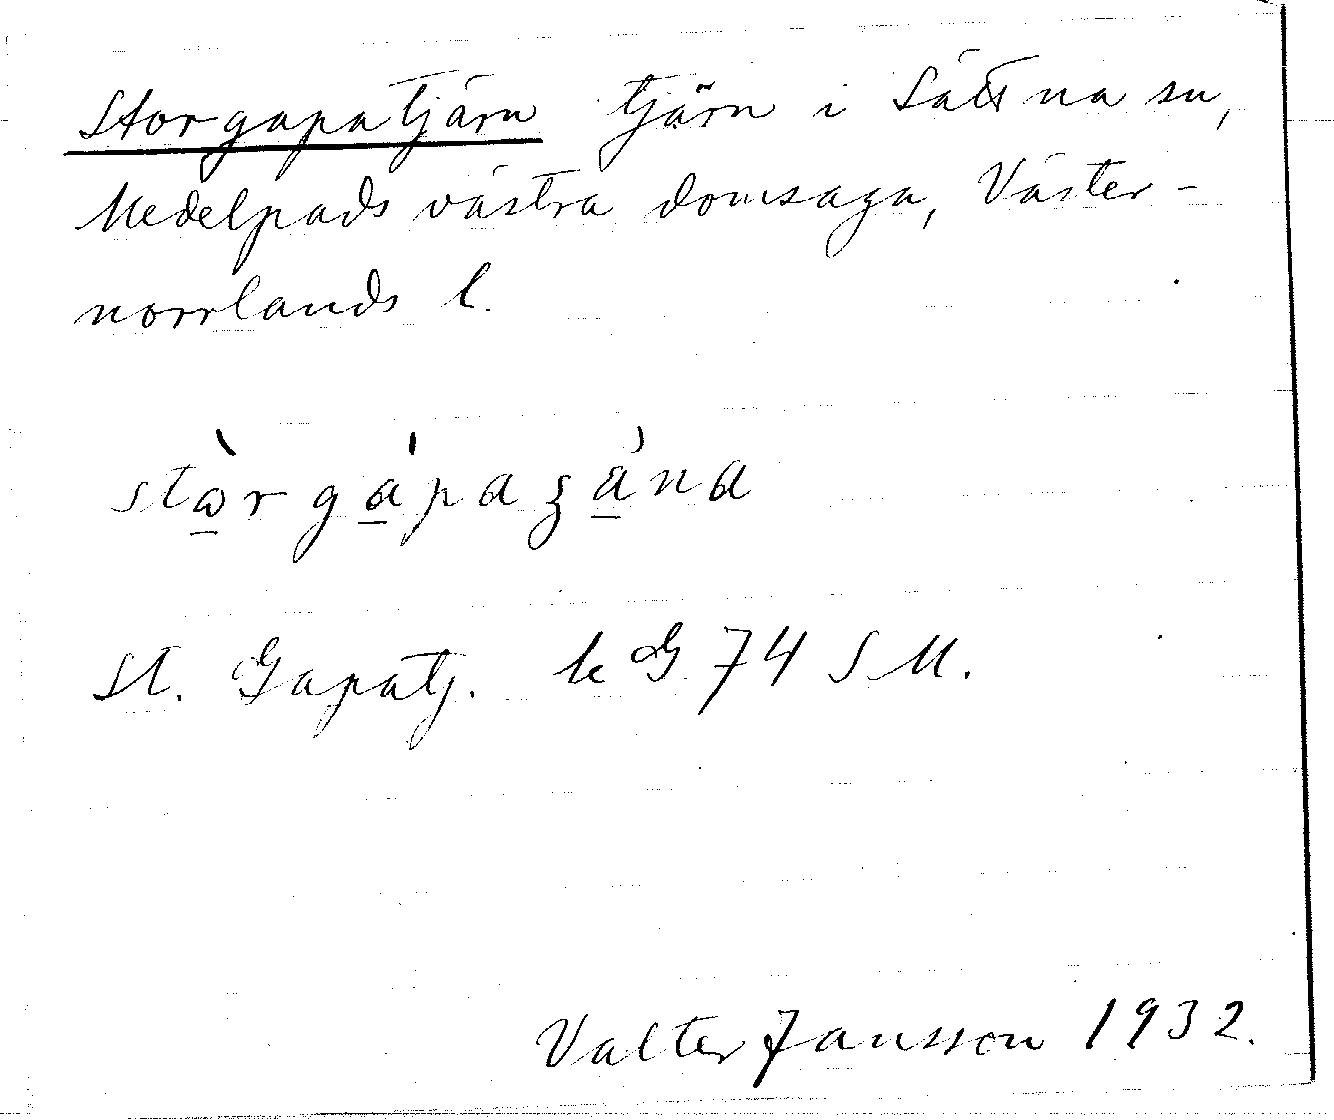 Storgapatjärn tjärn i Sättna sn,
Medelpads västra domsaga, Väster-
norrlands l.
stò̱r gá̱paʒá̱na
St. Gapatj. k G 74 S M.
Valter Jansson 1932.